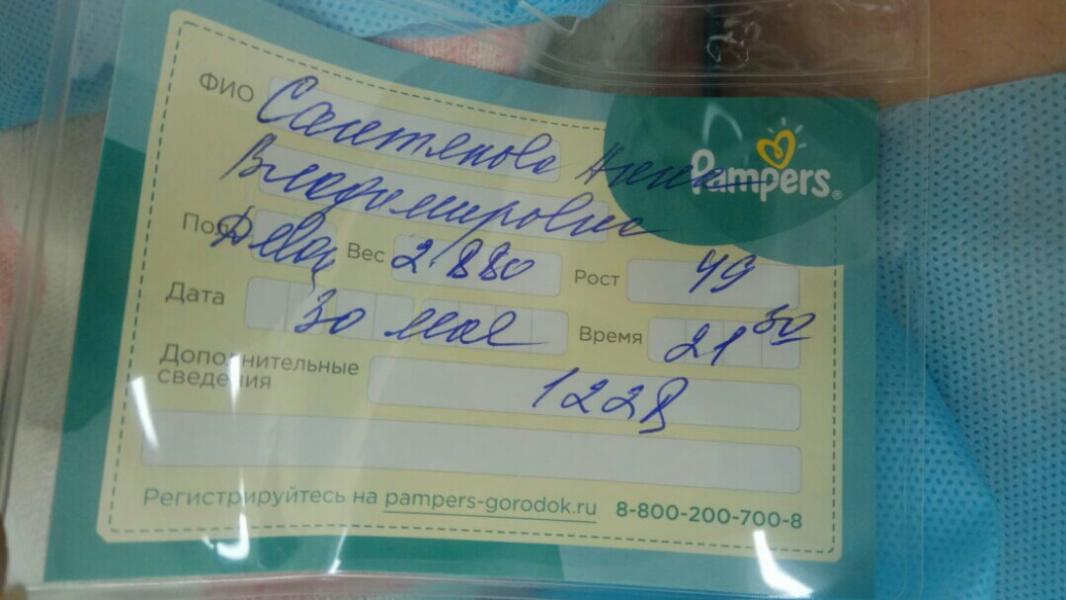 ФИО
Владимировна
Pampers®
Пол Девоч Вес 2.880 Рост 49
Дата 30 мая Время 21 50
Дополнительные
сведения
Регистрируйтесь на pampers-gorodok.ru 8-800-200-700-8